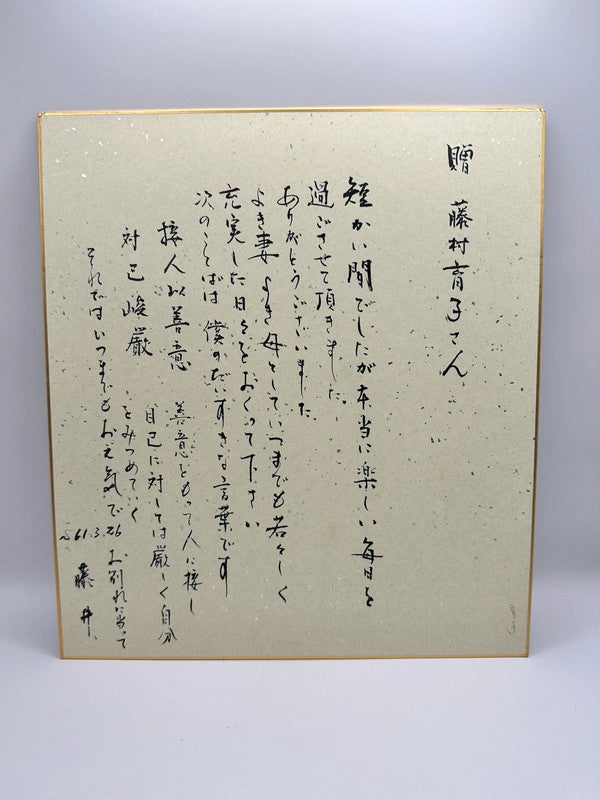 贈 藤村育子さん
短かい間でしたが本当に楽しい毎日を
過ごさせて頂きました。
ありがとうございました
よき妻 よき母としていつまでも若々しく
充実した日々をおくって下さい
次のことばは 僕のだいすきな言葉です
接人以善意 善意をもって人に接し
対己峻厳 自己に対しては厳しく自分
をみつめていく
それではいつまでもお元気で
お別れに当って
S61.3.26
藤井